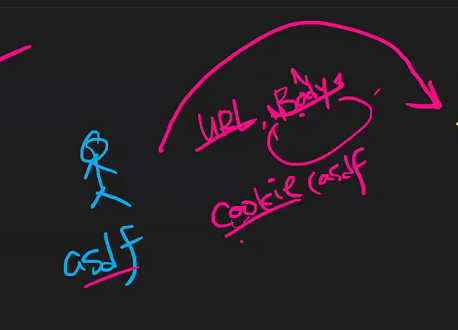 URL, Body
cookie (asdf
asdf